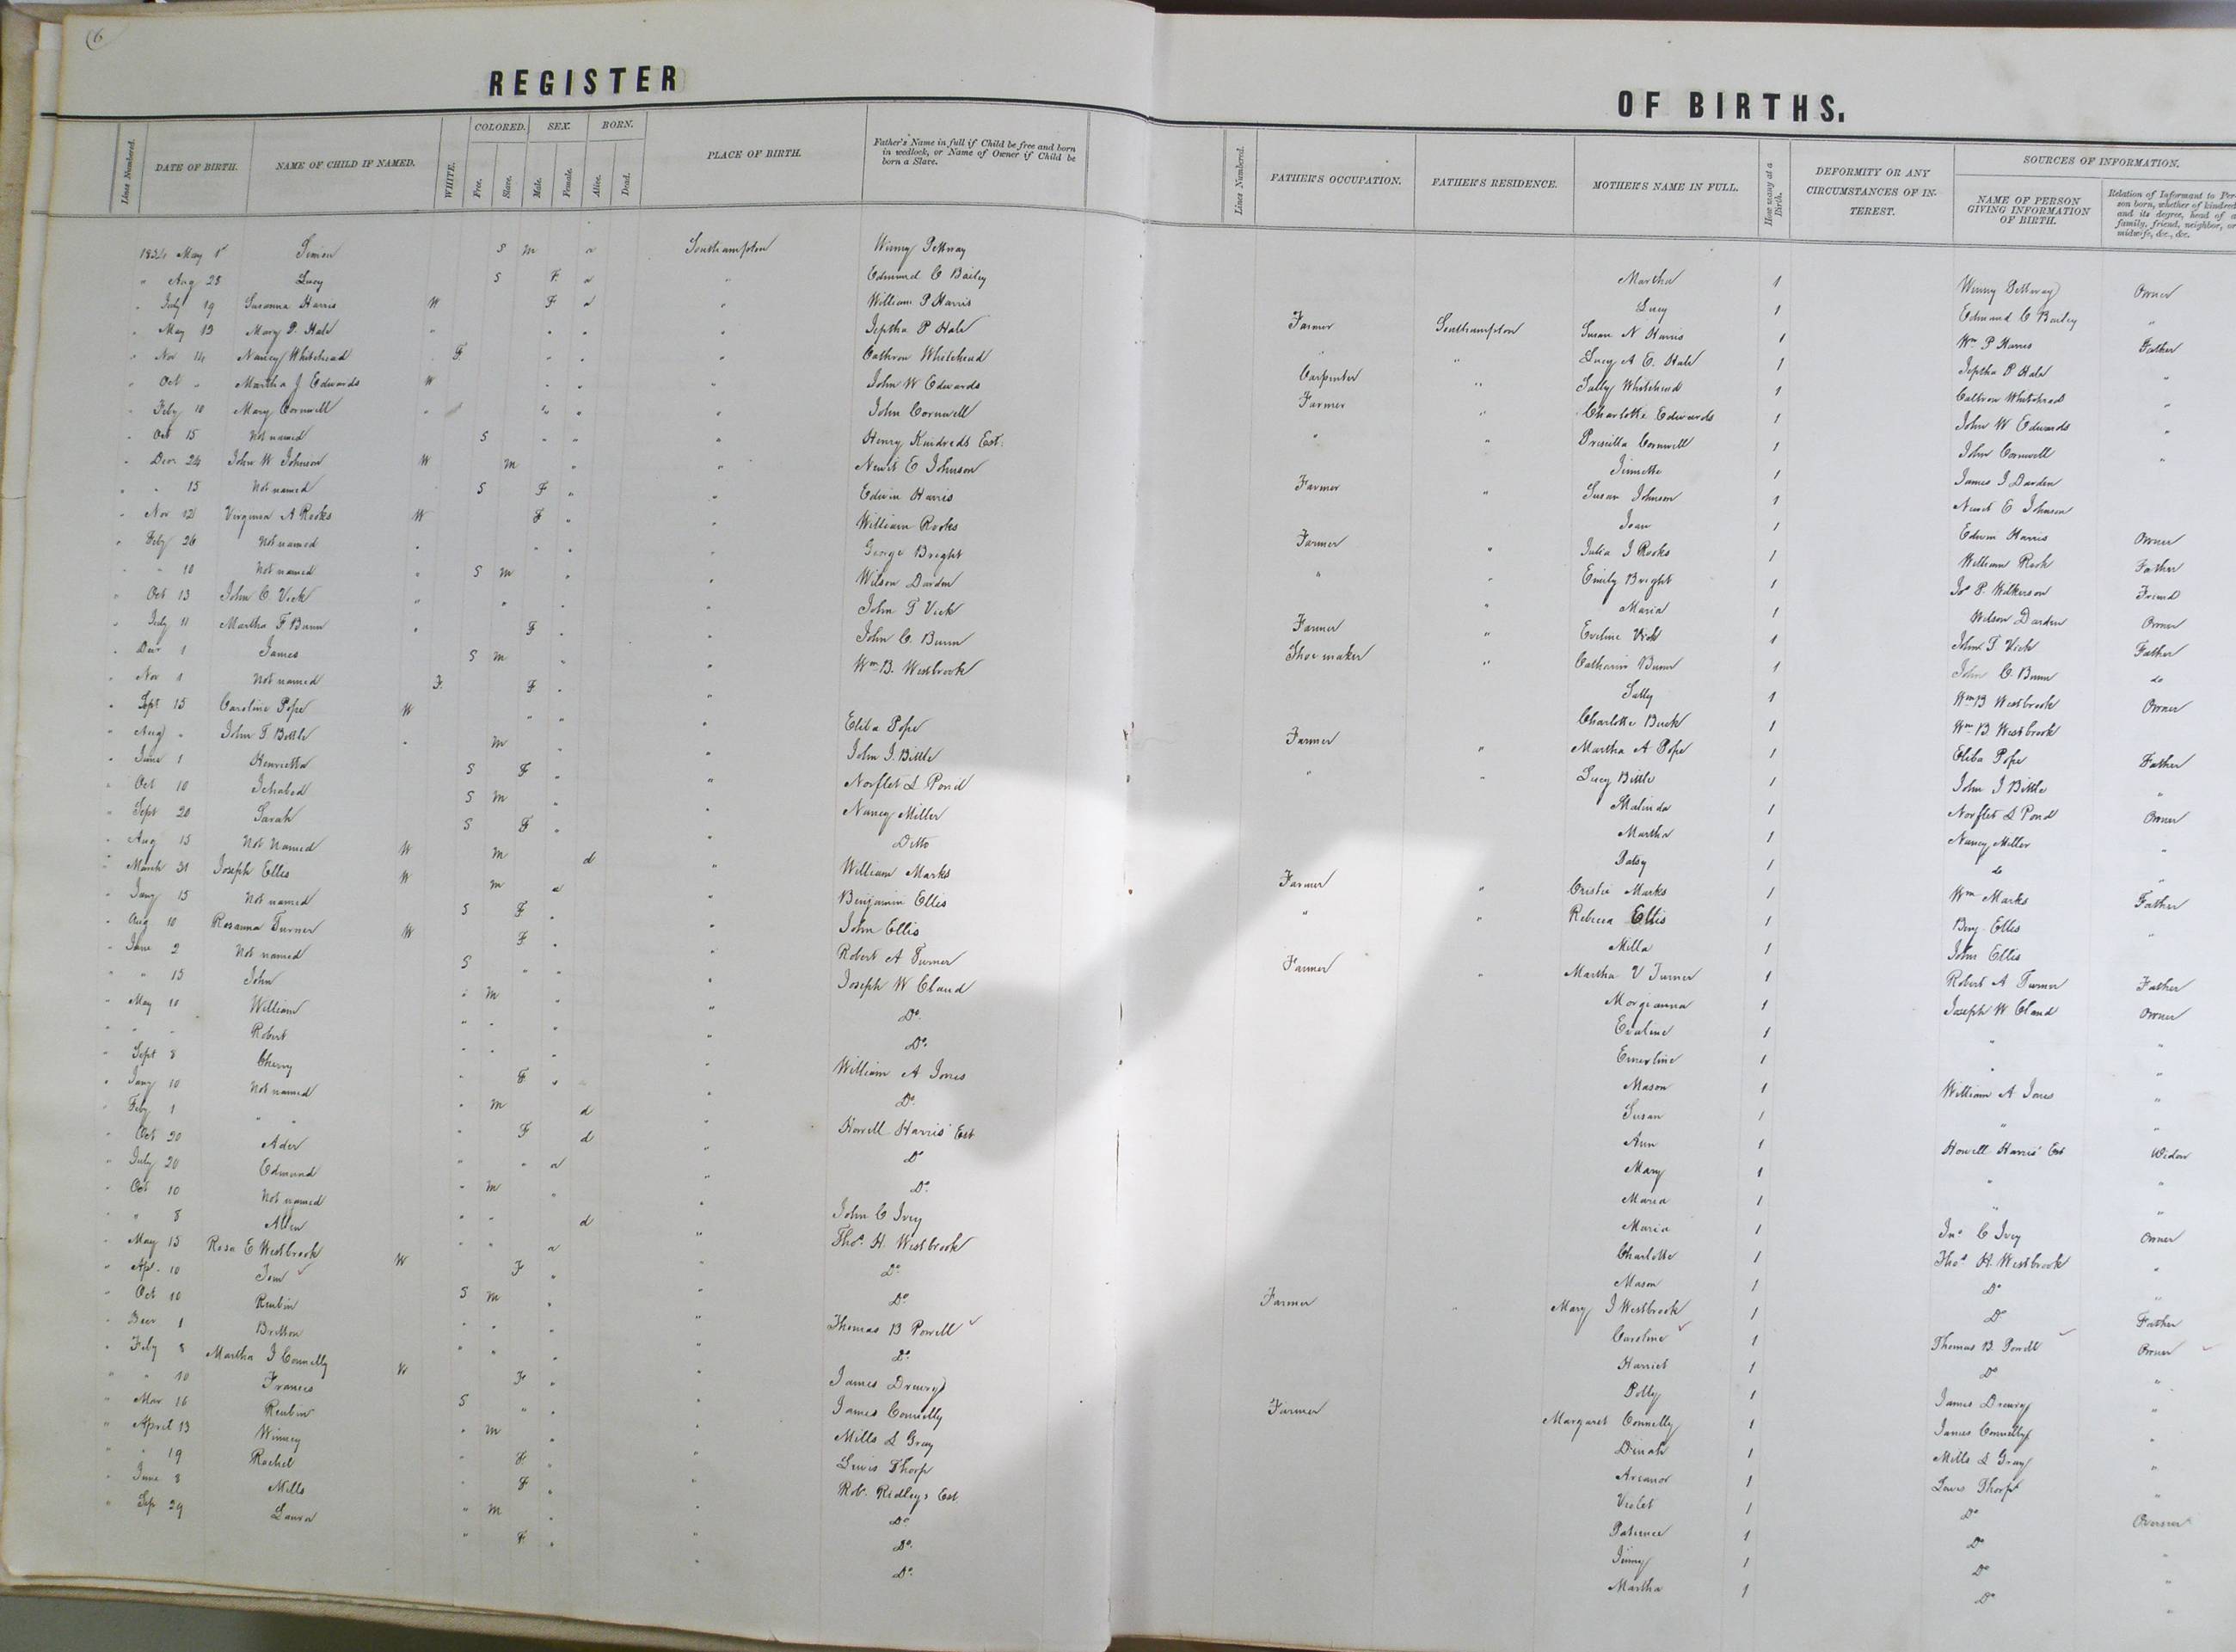 6
REGISTER OF BIRTHS.
Lines Numbered. DATE OF BIRTH. NAME OF CHILD IF NAMED. WHITE. COLORED. Free. Slave. SEX. Male. Female. BORN. Alive. Dead. PLACE OF BIRTH. Father's Name in full if Child be free and born in wedlock, or Name of Owner if Child be born a Slave.
Lines Numbered. FATHER'S OCCUPATION. FATHER'S RESIDENCE. MOTHER'S NAME IN FULL. How many at a Birth. DEFORMITY OR ANY CIRCUMSTANCES OF INTEREST. SOURCES OF INFORMATION. NAME OF PERSON GIVING INFORMATION OF BIRTH. Relation of Informant to Person born, whether of kindred and its degree, head of a family, friend, neighbor, or midwife, &c., &c.
1854 May 1st Simon S M a Southampton Winny Pettway Martha 1 Winny Pettway Owner
" Aug 28 Lucy S F a " Edmund C Bailey Lucy 1 Edmund C Bailey "
" July 19 Susanna Harris W F a " William P Harris Farmer Southampton Susan N Harris 1 Wm P Harris Father
" May 12 Mary P. Hale " " " " Jeptha P Hale " " Lucy A E. Hale 1 Jeptha P Hale "
" Nov 14 Nancy Whitehead F " " " Cathron Whitehead Carpenter " Sally Whitehead 1 Cathron Whitehead "
" Oct " Martha J Edwards W " " " John W Edwards Farmer " Charlotte Edwards 1 John W Edwards "
" Feby 10 Mary Cornwell " " " " John Cornwell " " Priscilla Cornwell 1 John Cornwell "
" Oct 15 Not named S " " " Henry Kindreds Est. Jinnette 1 James J Darden
" Decr 24 John W Johnson W M " " Newit E Johnson Farmer " Susan Johnson 1 Newit E Johnson
" " 15 Not named S F " " Edwin Harris Jean 1 Edwin Harris Owner
" Nov 12 Virginia A Rooks W F " " William Rooks Farmer " Julia J Rooks 1 William Rook Father
" Feby 26 Not named " " " " George Bright " " Emily Bright 1 Jos P. Wilkerson Friend
" " 10 Not named " S M " " Wilson Darden " Maria 1 Wilson Darden Owner
" Oct 13 John C. Vick " " " " John T Vick Farmer " Eveline Vick 1 John T. Vick Father
" July 11 Martha F Bunn " F " " John C. Bunn Shoe maker " Catharine Bunn 1 John C. Bunn do
" Decr 1 James S M " " Wm B. Westbrook Sally 1 Wm B Westbrook Owner
" Nov 1 Not named F F " " Charlotte Buck 1 Wm B Westbrook
" Sept 15 Caroline Pope W " " " Eliba Pope Farmer " Martha A Pope 1 Eliba Pope Father
" Aug " John T. Bittle " M " " John J. Bittle " " Lucy Bittle 1 John J Bittle "
" June 1 Henrietta S F " " Norflet L Pond Malinda 1 Norflet L Pond Owner
" Oct 10 Ichabod S M " " Nancy Miller Martha 1 Nancy Miller "
" Sept 20 Sarah S F " " Ditto Patsy 1 do "
" Aug 15 Not Named W M d " William Marks Farmer " Cristie Marks 1 Wm Marks Father
" March 31 Joseph Ellis W M a " Benjamin Ellis " " Rebecca Ellis 1 Benj. Ellis "
" Jany 15 Not named S F " " John Ellis Milla 1 John Ellis
" Aug 10 Rosanna Turner W F " " Robert A Turner Farmer " Martha V Turner 1 Robert A Turner Father
" June 2 Not named S " " " Joseph W Claud Morgianna 1 Joseph W Claud Owner
" " 15 John " M " " Do. Evaline 1 " "
" May 10 William " " " " Do. Emerline 1 " "
" " " Robert " " " " William A Jones Mason 1 William A Jones "
" Sept 8 Cherry " F " " Do. Susan 1 " "
" Jany 10 Not named " M d " Howell Harris' Est Ann 1 Howell Harris' Est Widow
" Feby 1 " " " F d " Do Mary 1 " "
" Oct 20 Ader " " a " Do. Maria 1 " "
" July 20 Edmund " M " " John C Ivey Maria 1 Jno C Ivey Owner
" Oct 10 Not named " " d " Thos. H. Westbrook Charlotte 1 Thos H. Westbrook "
" " 8 Allen " " a " Do. Mason 1 Do "
" May 15 Rosa E Westbrook W F " " Do. Farmer " Mary J Westbrook 1 Do Father
" Apl. 10 Jem S M " " Thomas B Powell Caroline 1 Thomas B. Powell Owner
" Oct 10 Reubin " " " " Do. Harriet 1 Do "
" Decr 1 Britton " " " " James Drewry Polly 1 James Drewry "
" Feby 8 Martha J Connelly W F " " James Connelly Farmer Margaret Connelly 1 James Connelly "
" " 10 Frances S " " " Mills L Gray Dinah 1 Mills L Gray "
" Mar 16 Reubin " M " " Lewis Thorp Arcanor 1 Lewis Thorp "
" April 13 Winney " F " " Rob. Ridley's Est. Violet 1 Do Overseer
" " 19 Rachel " F " " Do. Patience 1 Do "
" June 8 Mills " M " " Do. Jinny 1 Do "
" Sep 29 Laura " F " " Do. Martha 1 Do "